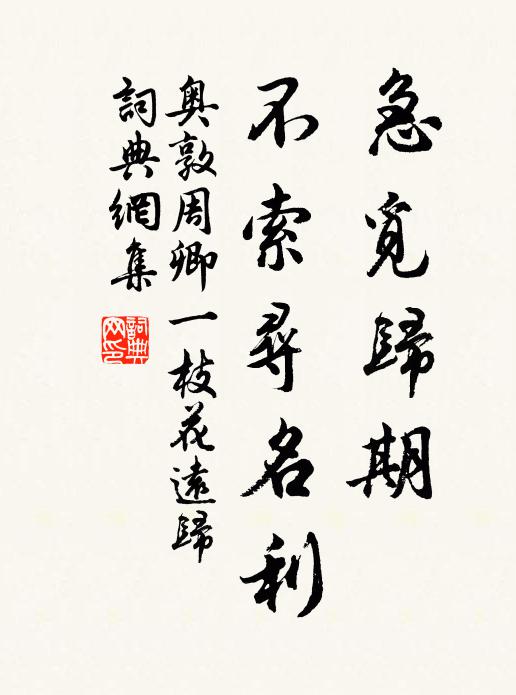 急覓歸期
不索尋名利
奥敦周卿一枝花遠歸
詞典網集
詞典
网印